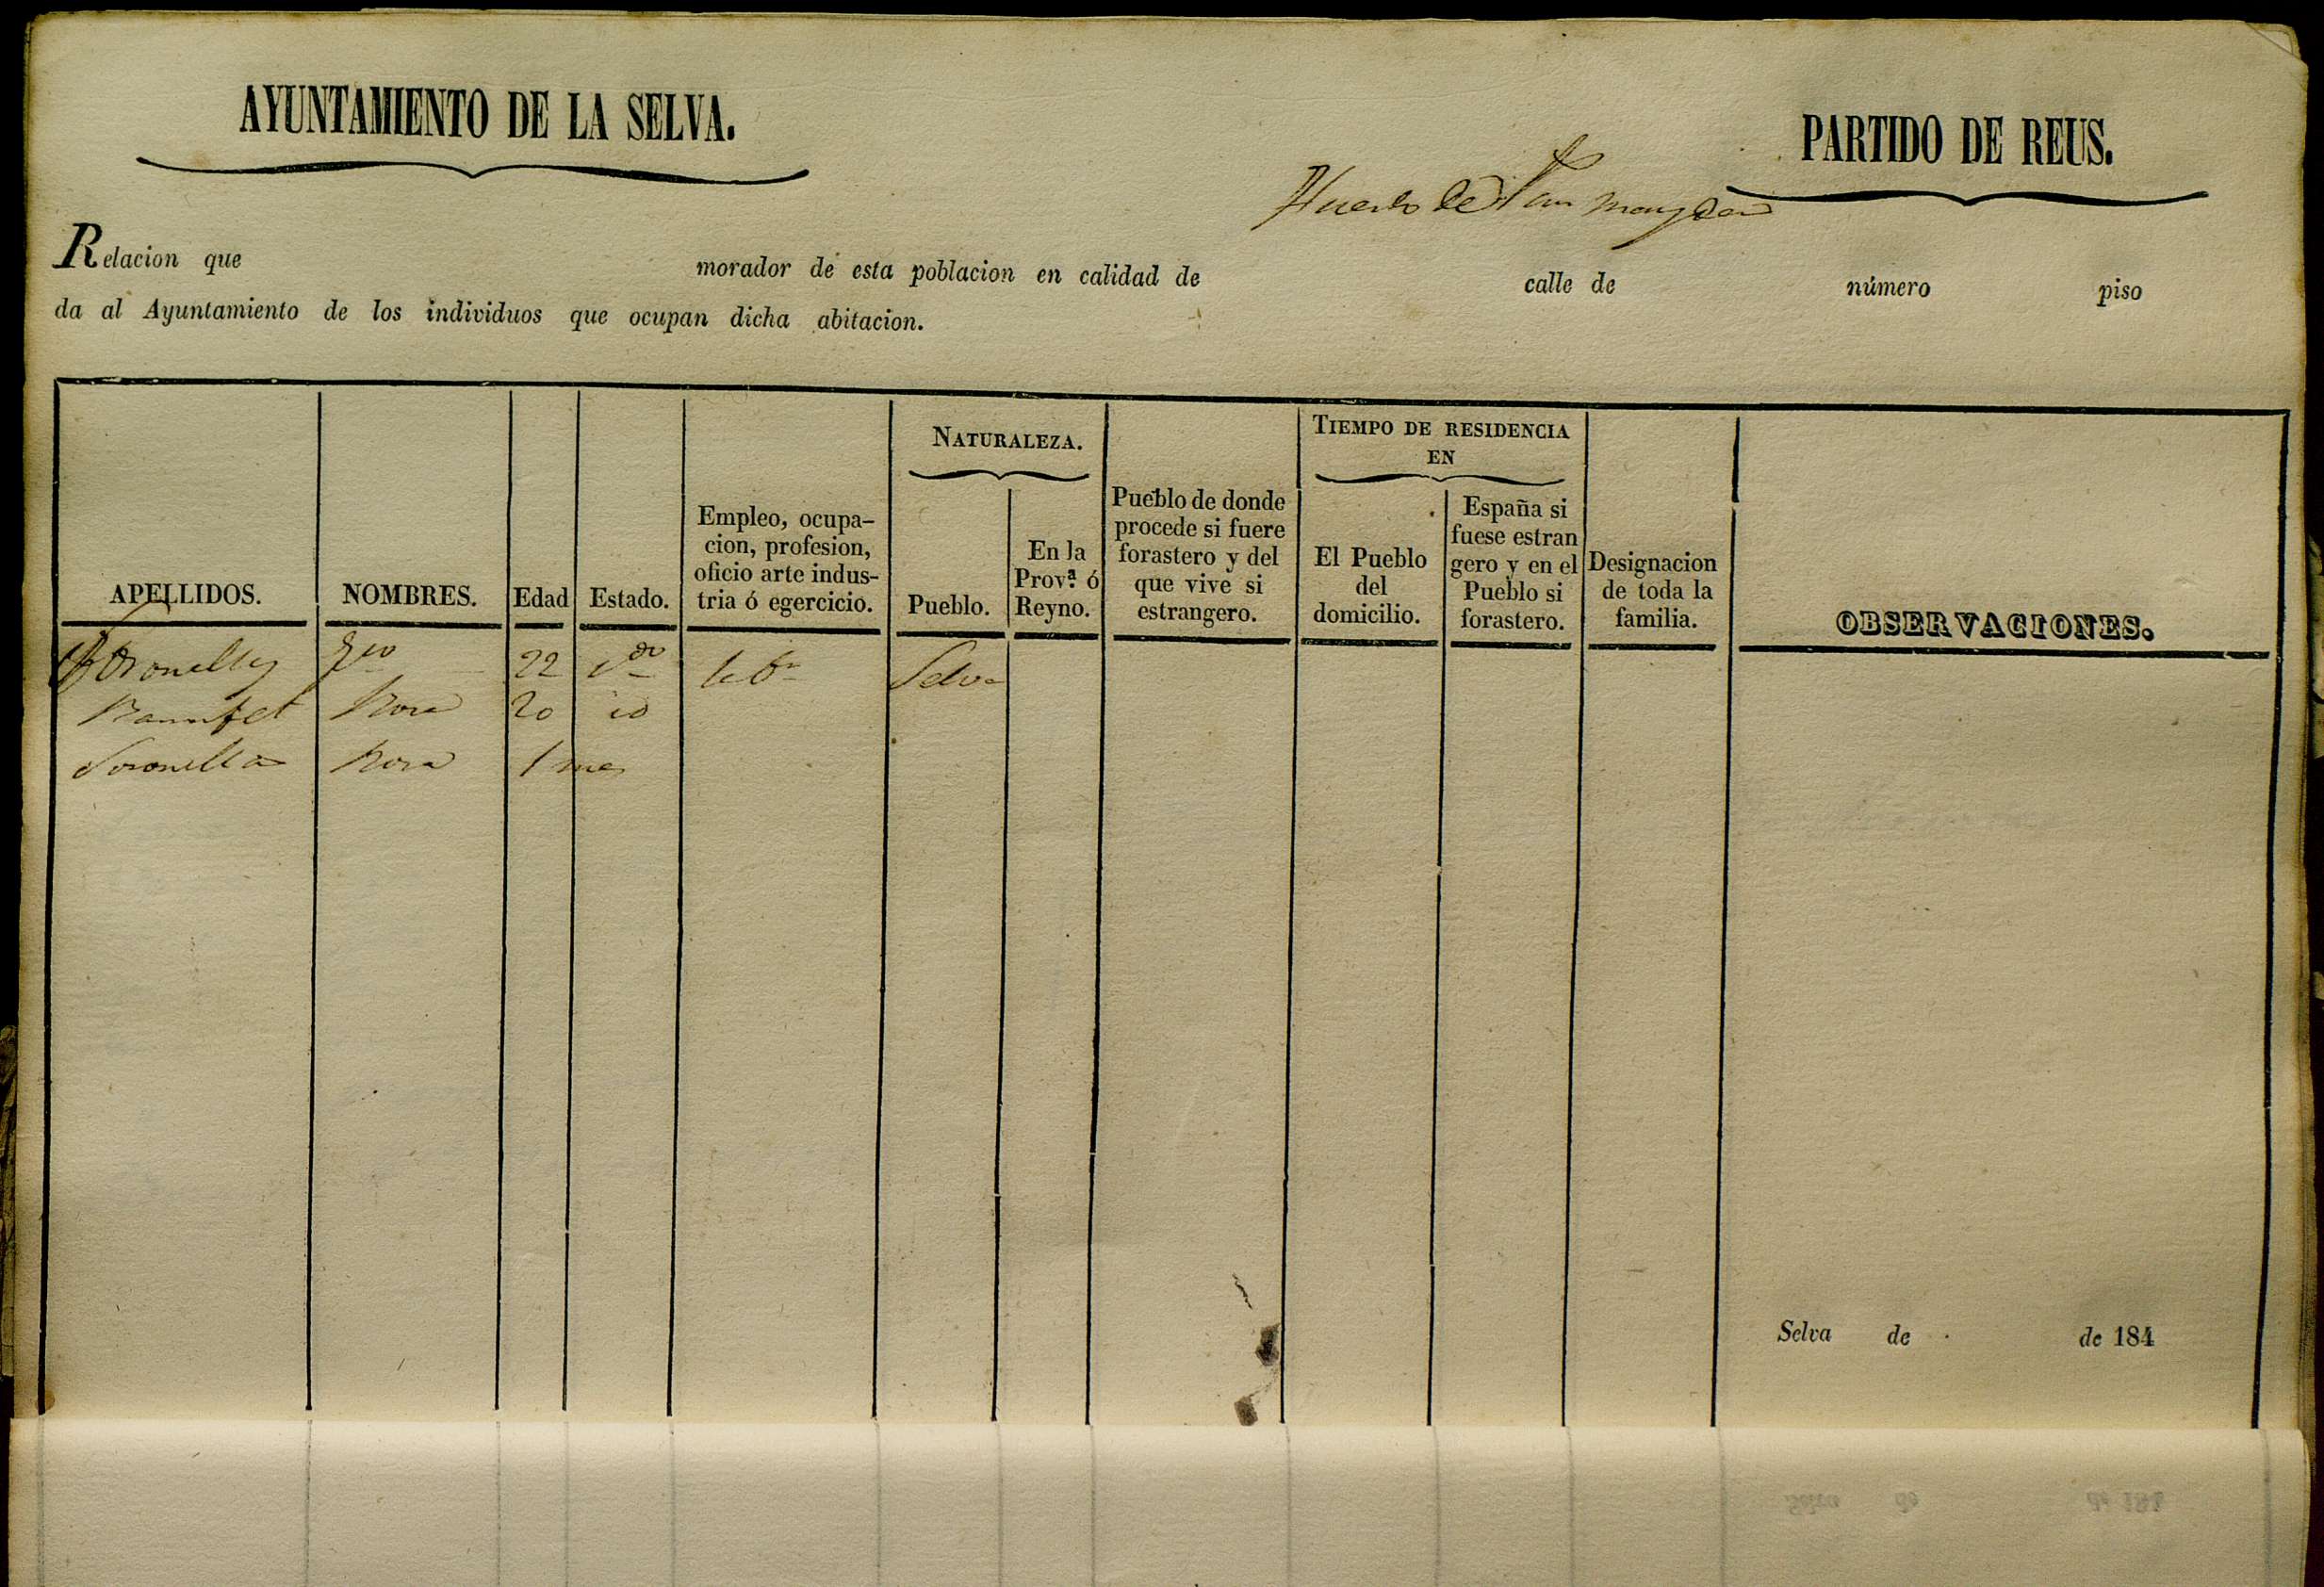 AYUNTAMIENTO DE LA SELVA.
PARTIDO DE REUS.
Huerto de
Relacion que morador de esta poblacion en calidad de calle de número piso
da al Ayuntamiento de los individuos que ocupan dicha abitacion.
APELLIDOS.
NOMBRES.
Edad
Estado.
Empleo, ocupa-
cion, profesion,
oficio arte indus-
tria ó egercicio.
NATURALEZA.
Pueblo.
En la
Prov.ª ó
Reyno.
Pueblo de donde
procede si fuere
forastero y del
que vive si
estrangero.
TIEMPO DE RESIDENCIA
EN
El Pueblo
del
domicilio.
España si
fuese estran
gero y en el
Pueblo si
forastero.
Designacion
de toda la
familia.
OBSERVACIONES.
22 Selva
Rosa 20 id
Soronellas Rosa 1 mes
Selva de de 184